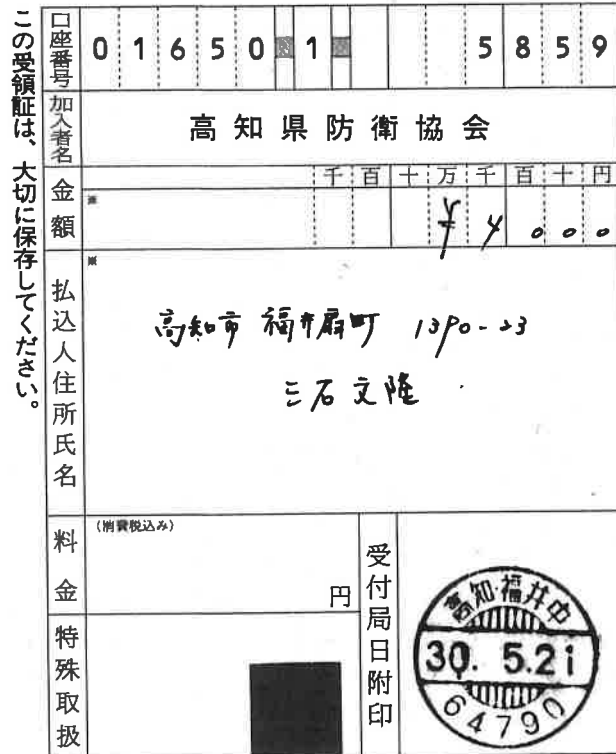 この受領証は、大切に保存してください。
口座番号 01650 1 5859
加入者名 高知県防衛協会
金額 千百十万千百十円
※ ¥4000
払込人住所氏名 ※
高知市 福井扇町 1390-23
三石文隆
料金 (消費税込み) 円
特殊取扱
受付局日附印
高知・福井中
30. 5.21
64790